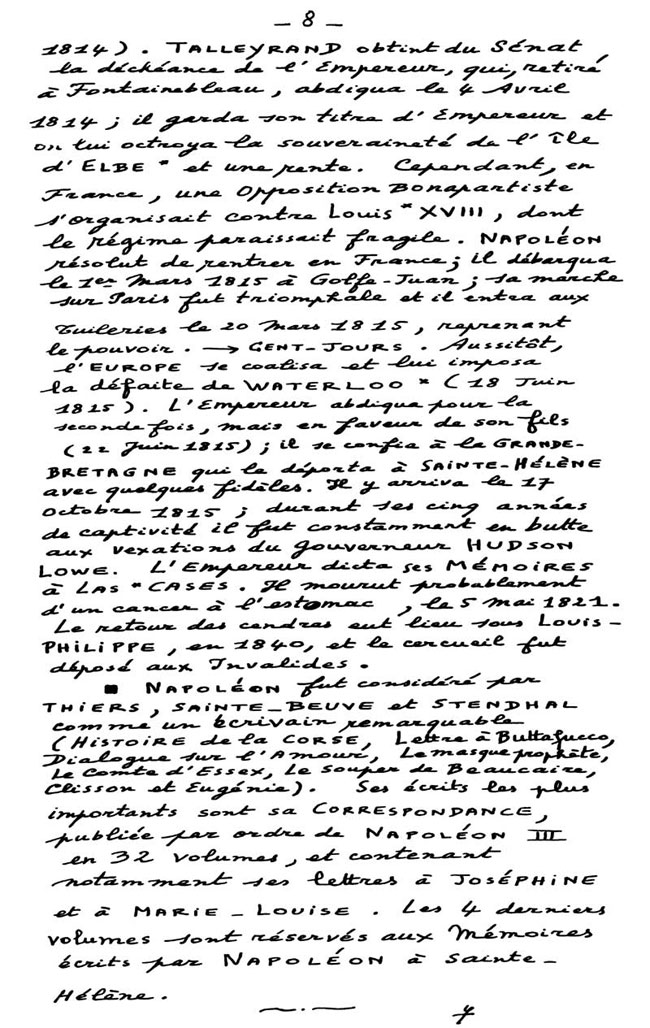 — 8 —
1814). TALLEYRAND obtint du Sénat
la déchéance de l'Empereur, qui, retiré
à Fontainebleau, abdiqua le 4 Avril
1814 ; il garda son titre d'Empereur et
on lui octroya la souveraineté de l'île
d'ELBE * et une rente. Cependant, en
France, une Opposition Bonapartiste
s'organisait contre Louis * XVIII, dont
le régime paraissait fragile. NAPOLÉON
résolut de rentrer en France ; il débarqua
le 1er Mars 1815 à Golfe-Juan ; sa marche
sur Paris fut triomphale et il entra aux
Tuileries le 20 Mars 1815, reprenant
le pouvoir. → CENT-JOURS. Aussitôt,
l'EUROPE se coalisa et lui imposa
la défaite de WATERLOO * (18 Juin
1815). L'Empereur abdiqua pour la
seconde fois, mais en faveur de son fils
(22 Juin 1815) ; il se confia à la GRANDE-
BRETAGNE qui le déporta à SAINTE-HÉLÈNE
avec quelques fidèles. Il y arriva le 17
Octobre 1815 ; durant ses cinq années
de captivité il fut constamment en butte
aux vexations du gouverneur HUDSON
LOWE. L'Empereur dicta ses MÉMOIRES
à LAS * CASES. Il mourut probablement
d'un cancer à l'estomac, le 5 Mai 1821.
Le retour des cendres eut lieu sous LOUIS-
PHILIPPE, en 1840, et le cercueil fut
déposé aux Invalides.
■ NAPOLÉON fut considéré par
THIERS, SAINTE-BEUVE et STENDHAL
comme un écrivain remarquable
(HISTOIRE de la CORSE, Lettre à Buttafucco,
Dialogue sur l'Amour, Le masque prophète,
Le Comte d'Essex, Le Souper de Beaucaire,
Clisson et Eugénie). Ses écrits les plus
importants sont sa CORRESPONDANCE,
publiée par ordre de NAPOLÉON III
en 32 volumes, et contenant
notamment ses lettres à JOSÉPHINE
et à MARIE-LOUISE. Les 4 derniers
volumes sont réservés aux Mémoires
écrits par NAPOLÉON à Sainte-
Hélène.